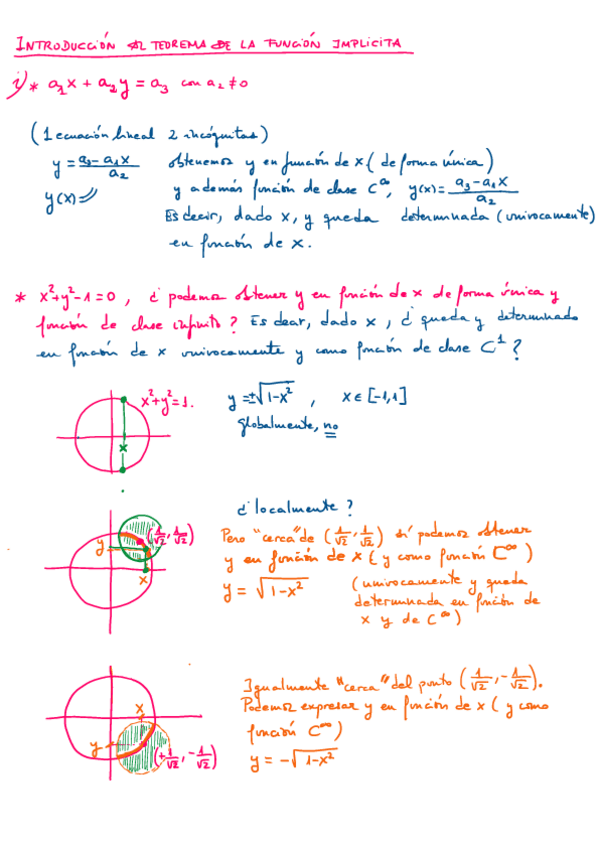 INTRODUCCIÓN AL TEOREMA DE LA FUNCIÓN IMPLICITA
i) * a₁x + a₂y = a₃ con a₂ ≠ 0
(1 ecuación lineal 2 incógnitas)
y = (a₃ - a₁x)/a₂ obtenemos y en función de x (de forma única)
y(x) y además función de clase C^∞, y(x) = (a₃ - a₁x)/a₂
Es decir, dado x, y queda determinada (univocamente)
en función de x.
* x²+y²-1=0, ¿podemos obtener y en función de x de forma única y
función de clase infinito? Es decir, dado x, ¿queda y determinado
en función de x univocamente y como función de clase C¹?
x²+y²=1. y = ±√(1-x²), x ∈ [-1,1]
globalmente, no
x
¿localmente?
(1/√2, 1/√2) Pero "cerca" de (1/√2, 1/√2) sí podemos obtener
y y en función de x (y como función C^∞)
x y = √(1-x²) (univocamente y queda
determinada en función de
x y de C^∞)
Igualmente "cerca" del punto (1/√2, -1/√2).
x Podemos expresar y en función de x (y como
y función C^∞)
(+1/√2, -1/√2) y = -√(1-x²)